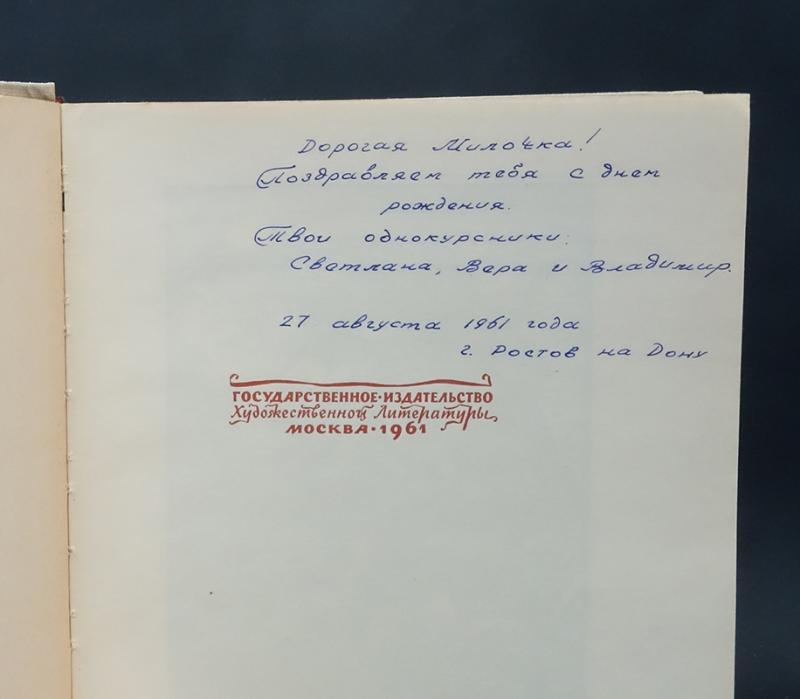 Дорогая Милочка!
Поздравляем тебя с днем
рождения.
Твои однокурсники:
Светлана, Вера и Владимир.
27 августа 1961 года
г. Ростов на Дону
ГОСУДАРСТВЕННОЕ·ИЗДАТЕЛЬСТВО
Художественной Литературы
МОСКВА·1961